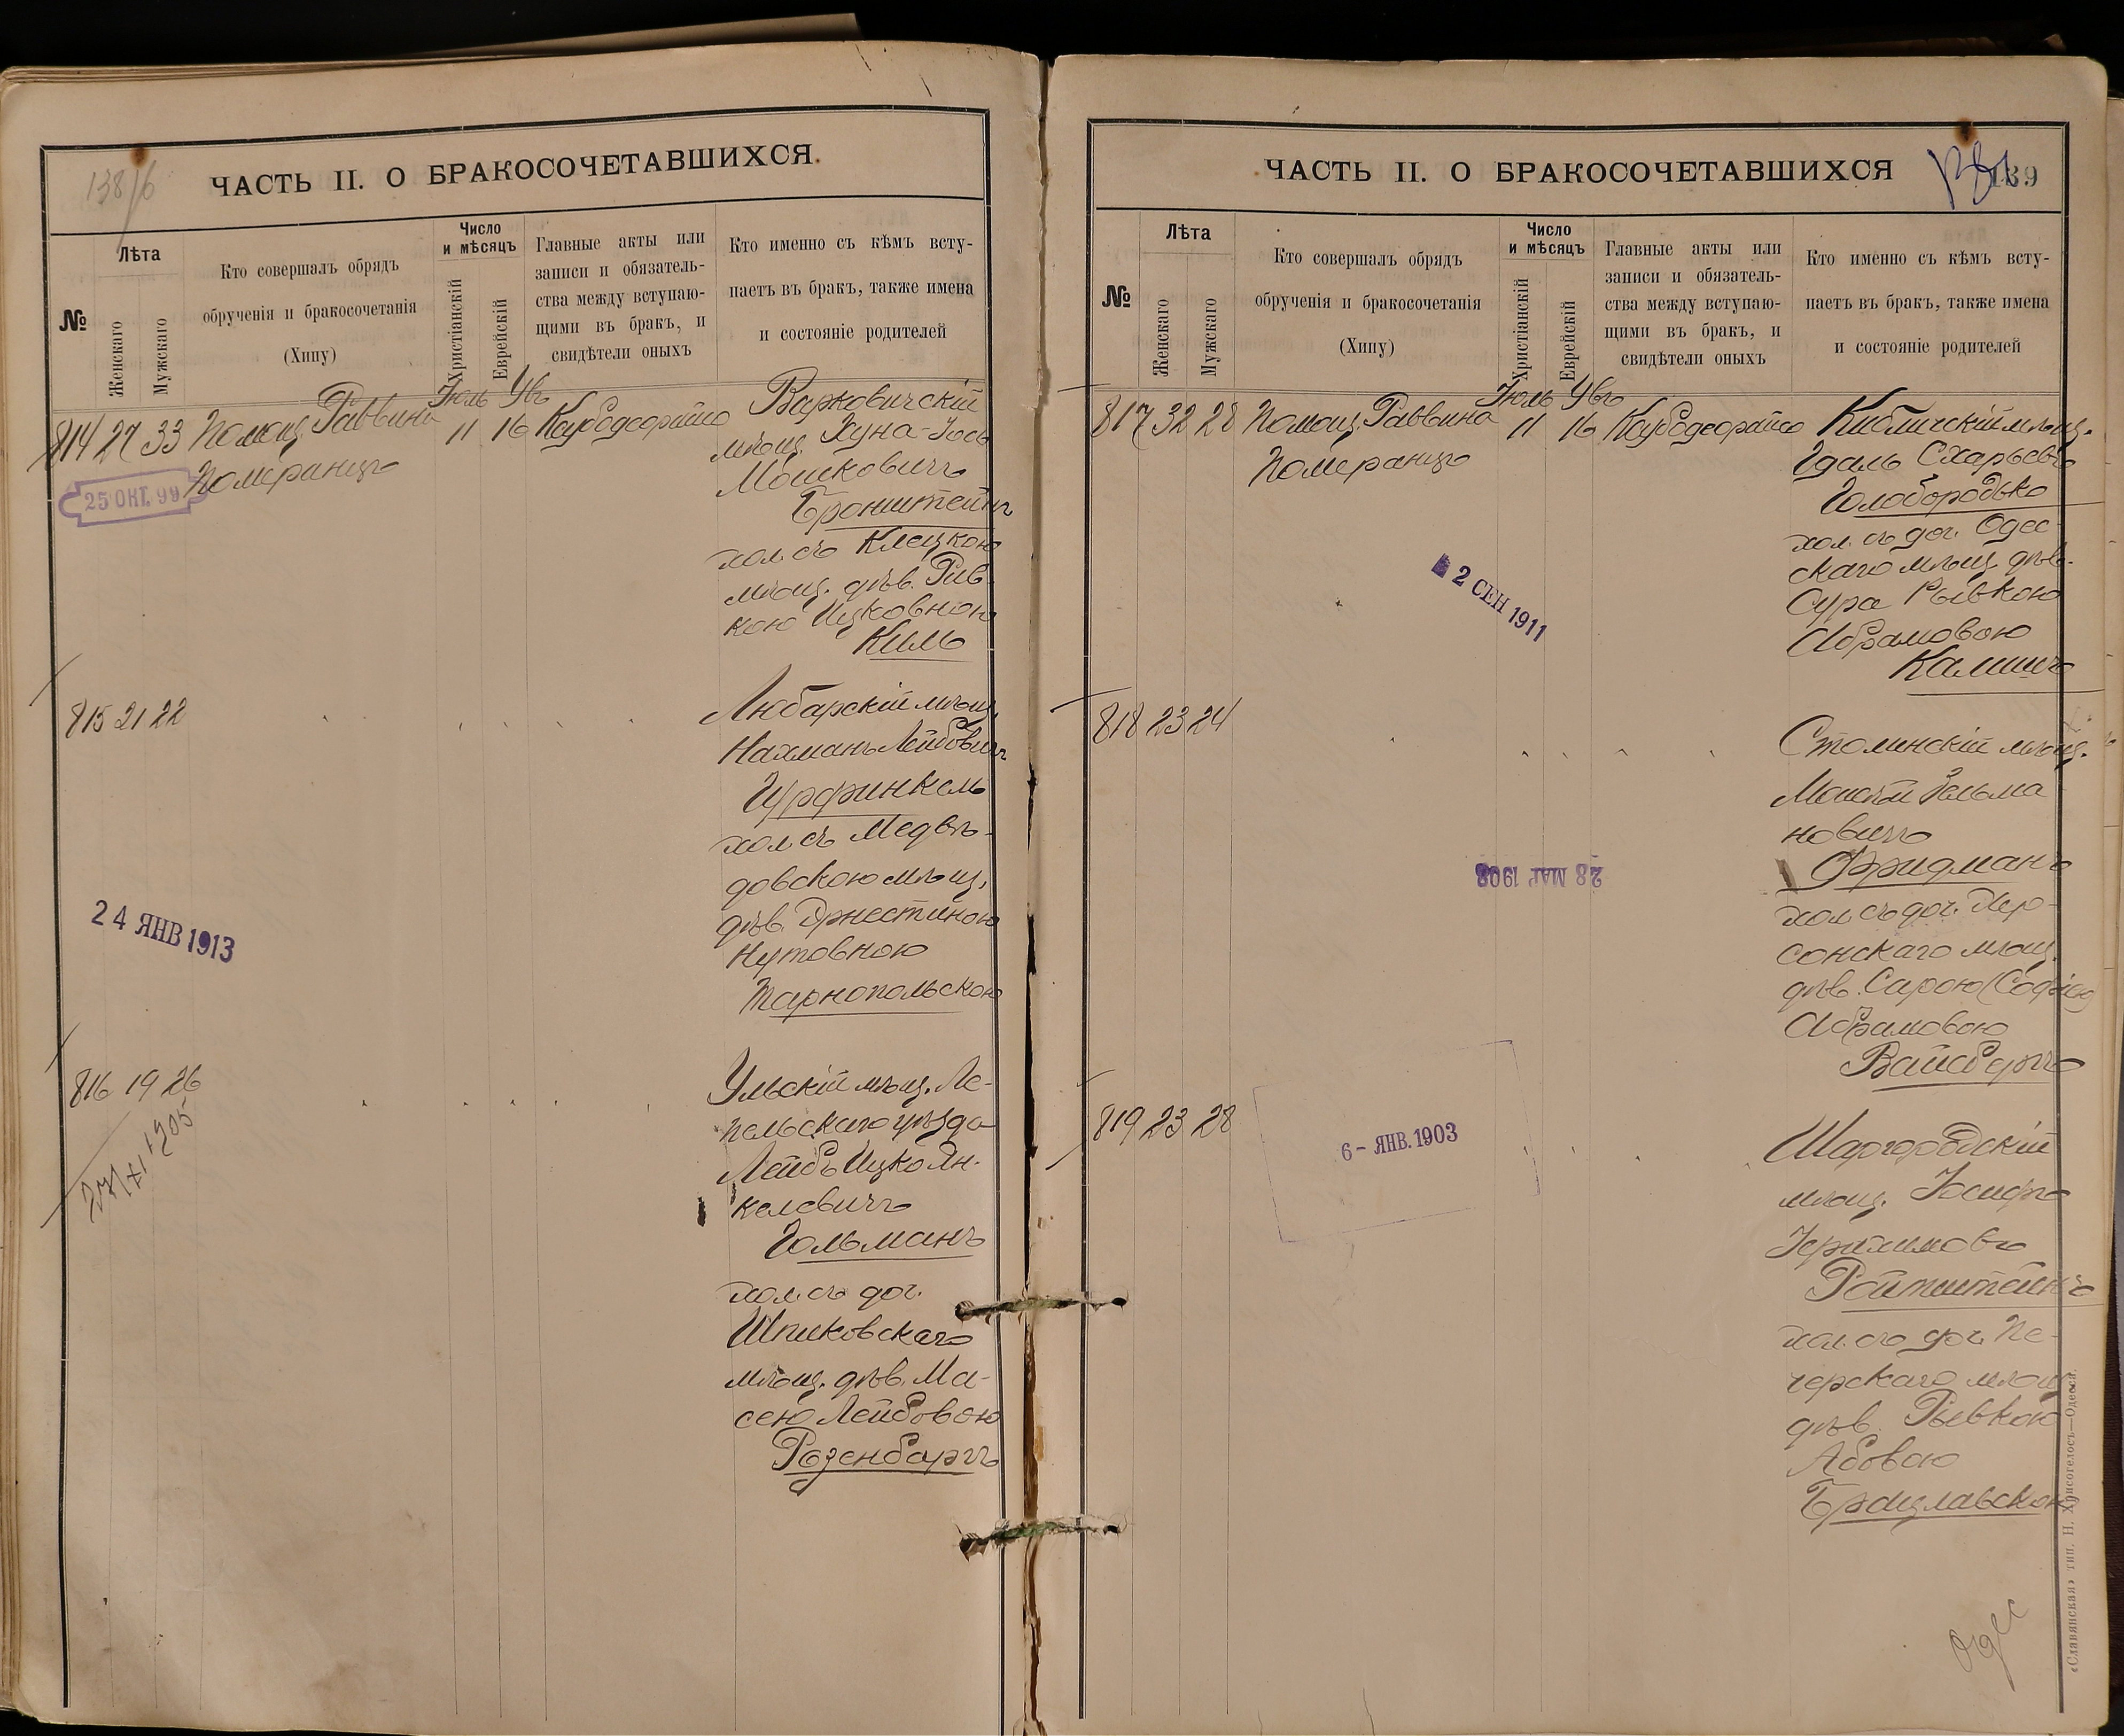 138/6
ЧАСТЬ II. О БРАКОСОЧЕТАВШИХСЯ.
№
Лѣта
Женскаго
Мужскаго
Кто совершалъ обрядъ
обрученія и бракосочетанія
(Хипу)
Число
и мѣсяцъ
Христіанскій
Еврейскій
Главные акты или
записи и обязатель-
ства между вступаю-
щими въ бракъ, и
свидѣтели оныхъ
Кто именно съ кѣмъ всту-
паетъ въ бракъ, также имена
и состояніе родителей
Іюль
814 27 33 Помощ. Раввина 11 16
Померанцъ
25 ОКТ. 99
Варковичскій
мѣщ. Хуна-Іось
Мошковичъ
Бронштейнъ
хол. съ Клецкою
мѣщ. дѣв. Рив-
кою Ицковною
Киль
815 21 22
Любарскій мѣщ.
Нахманъ Лейбовичъ
Гурфинкель
хол. съ Медвѣ-
довскою мѣщ.
дѣв. Эрнестиною
Нутовною
Тарнопольскою
24 ЯНВ 1913
816 19 26
1905
Ульскій мѣщ. Ле-
пельскаго уѣзда
Лейбъ Ицко Ян-
келевичъ
Гольманъ
хол. съ доч.
Шпиковскаго
мѣщ. дѣв. Ма-
сею Лейбовою
Розенбаргъ
ЧАСТЬ II. О БРАКОСОЧЕТАВШИХСЯ
139
№
Лѣта
Женскаго
Мужскаго
Кто совершалъ обрядъ
обрученія и бракосочетанія
(Хипу)
Число
и мѣсяцъ
Христіанскій
Еврейскій
Главные акты или
записи и обязатель-
ства между вступаю-
щими въ бракъ, и
свидѣтели оныхъ
Кто именно съ кѣмъ всту-
паетъ въ бракъ, также имена
и состояніе родителей
Іюль
817 32 28 Помощ. Раввина 11 16
Померанцъ
2 СЕН 1911
Кибличскій мѣщ.
Гдаль Схарьевъ
Голобородько
хол. съ доч. Одес-
скаго мѣщ. дѣв.
Сура Рывкою
Абрамовою
818 23 24
28 МАР 1908
Столинскій мѣщ.
Моисей Зельма
новичъ
Фридманъ
хол. съ доч. Хер-
сонскаго мѣщ.
дѣв. Сарою (Софіею)
Абрамовою
Вайсбергъ
819 23 28
6 - ЯНВ. 1903
Шаргородскій
мѣщ. Іосифъ
Ройтштейнъ
хол. съ доч. Пе-
черскаго мѣщ.
дѣв. Рывкою
Абовою
Брацлавскою
Одес
«Славянская» тип. Н. Хрисогелосъ—Одесса.